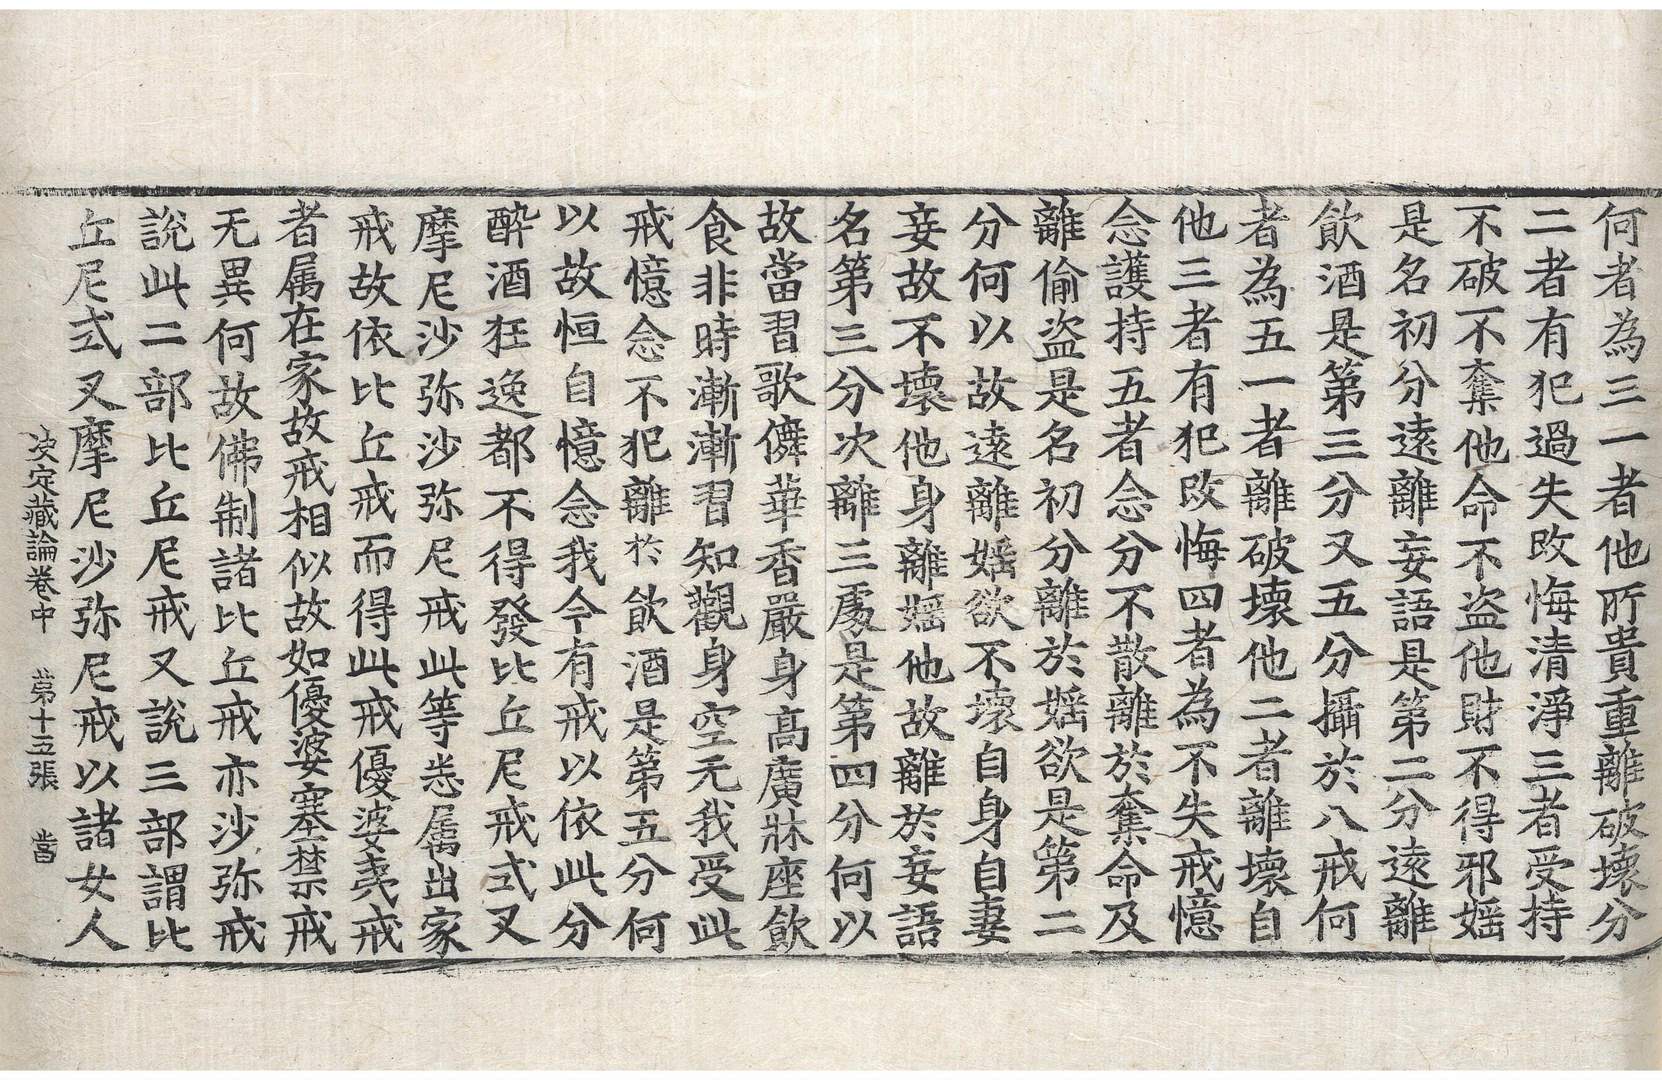 何者為三一者他所貴重離破壞分
二者有犯過失改悔清淨三者受持
不破不奪他命不盜他財不得邪婬
是名初分遠離妄語是第二分遠離
飲酒是第三分又五分攝於八戒何
者為五一者離破壞他二者離壞自
他三者有犯改悔四者為不失戒憶
念護持五者念分不散離於奪命及
離偷盜是名初分離於婬欲是第二
分何以故遠離婬欲不壞自身自妻
妄故不壞他身離婬他故離於妄語
名第三分次離三處是第四分何以
故當習歌儛華香嚴身高廣牀座飲
食非時漸漸習知觀身空无我受此
戒憶念不犯離於飲酒是第五分何
以故恒自憶念我今有戒以依此分
醉酒狂逸都不得發比丘尼戒式叉
摩尼沙弥沙弥尼戒此等悉属出家
戒故依比丘戒而得此戒優婆夷戒
者属在家故戒相似故如優婆塞禁戒
无異何故佛制諸比丘戒亦沙弥戒
說此二部比丘尼戒又說三部謂比
丘尼式叉摩尼沙弥尼戒以諸女人
决定藏論卷中 第十五張 當